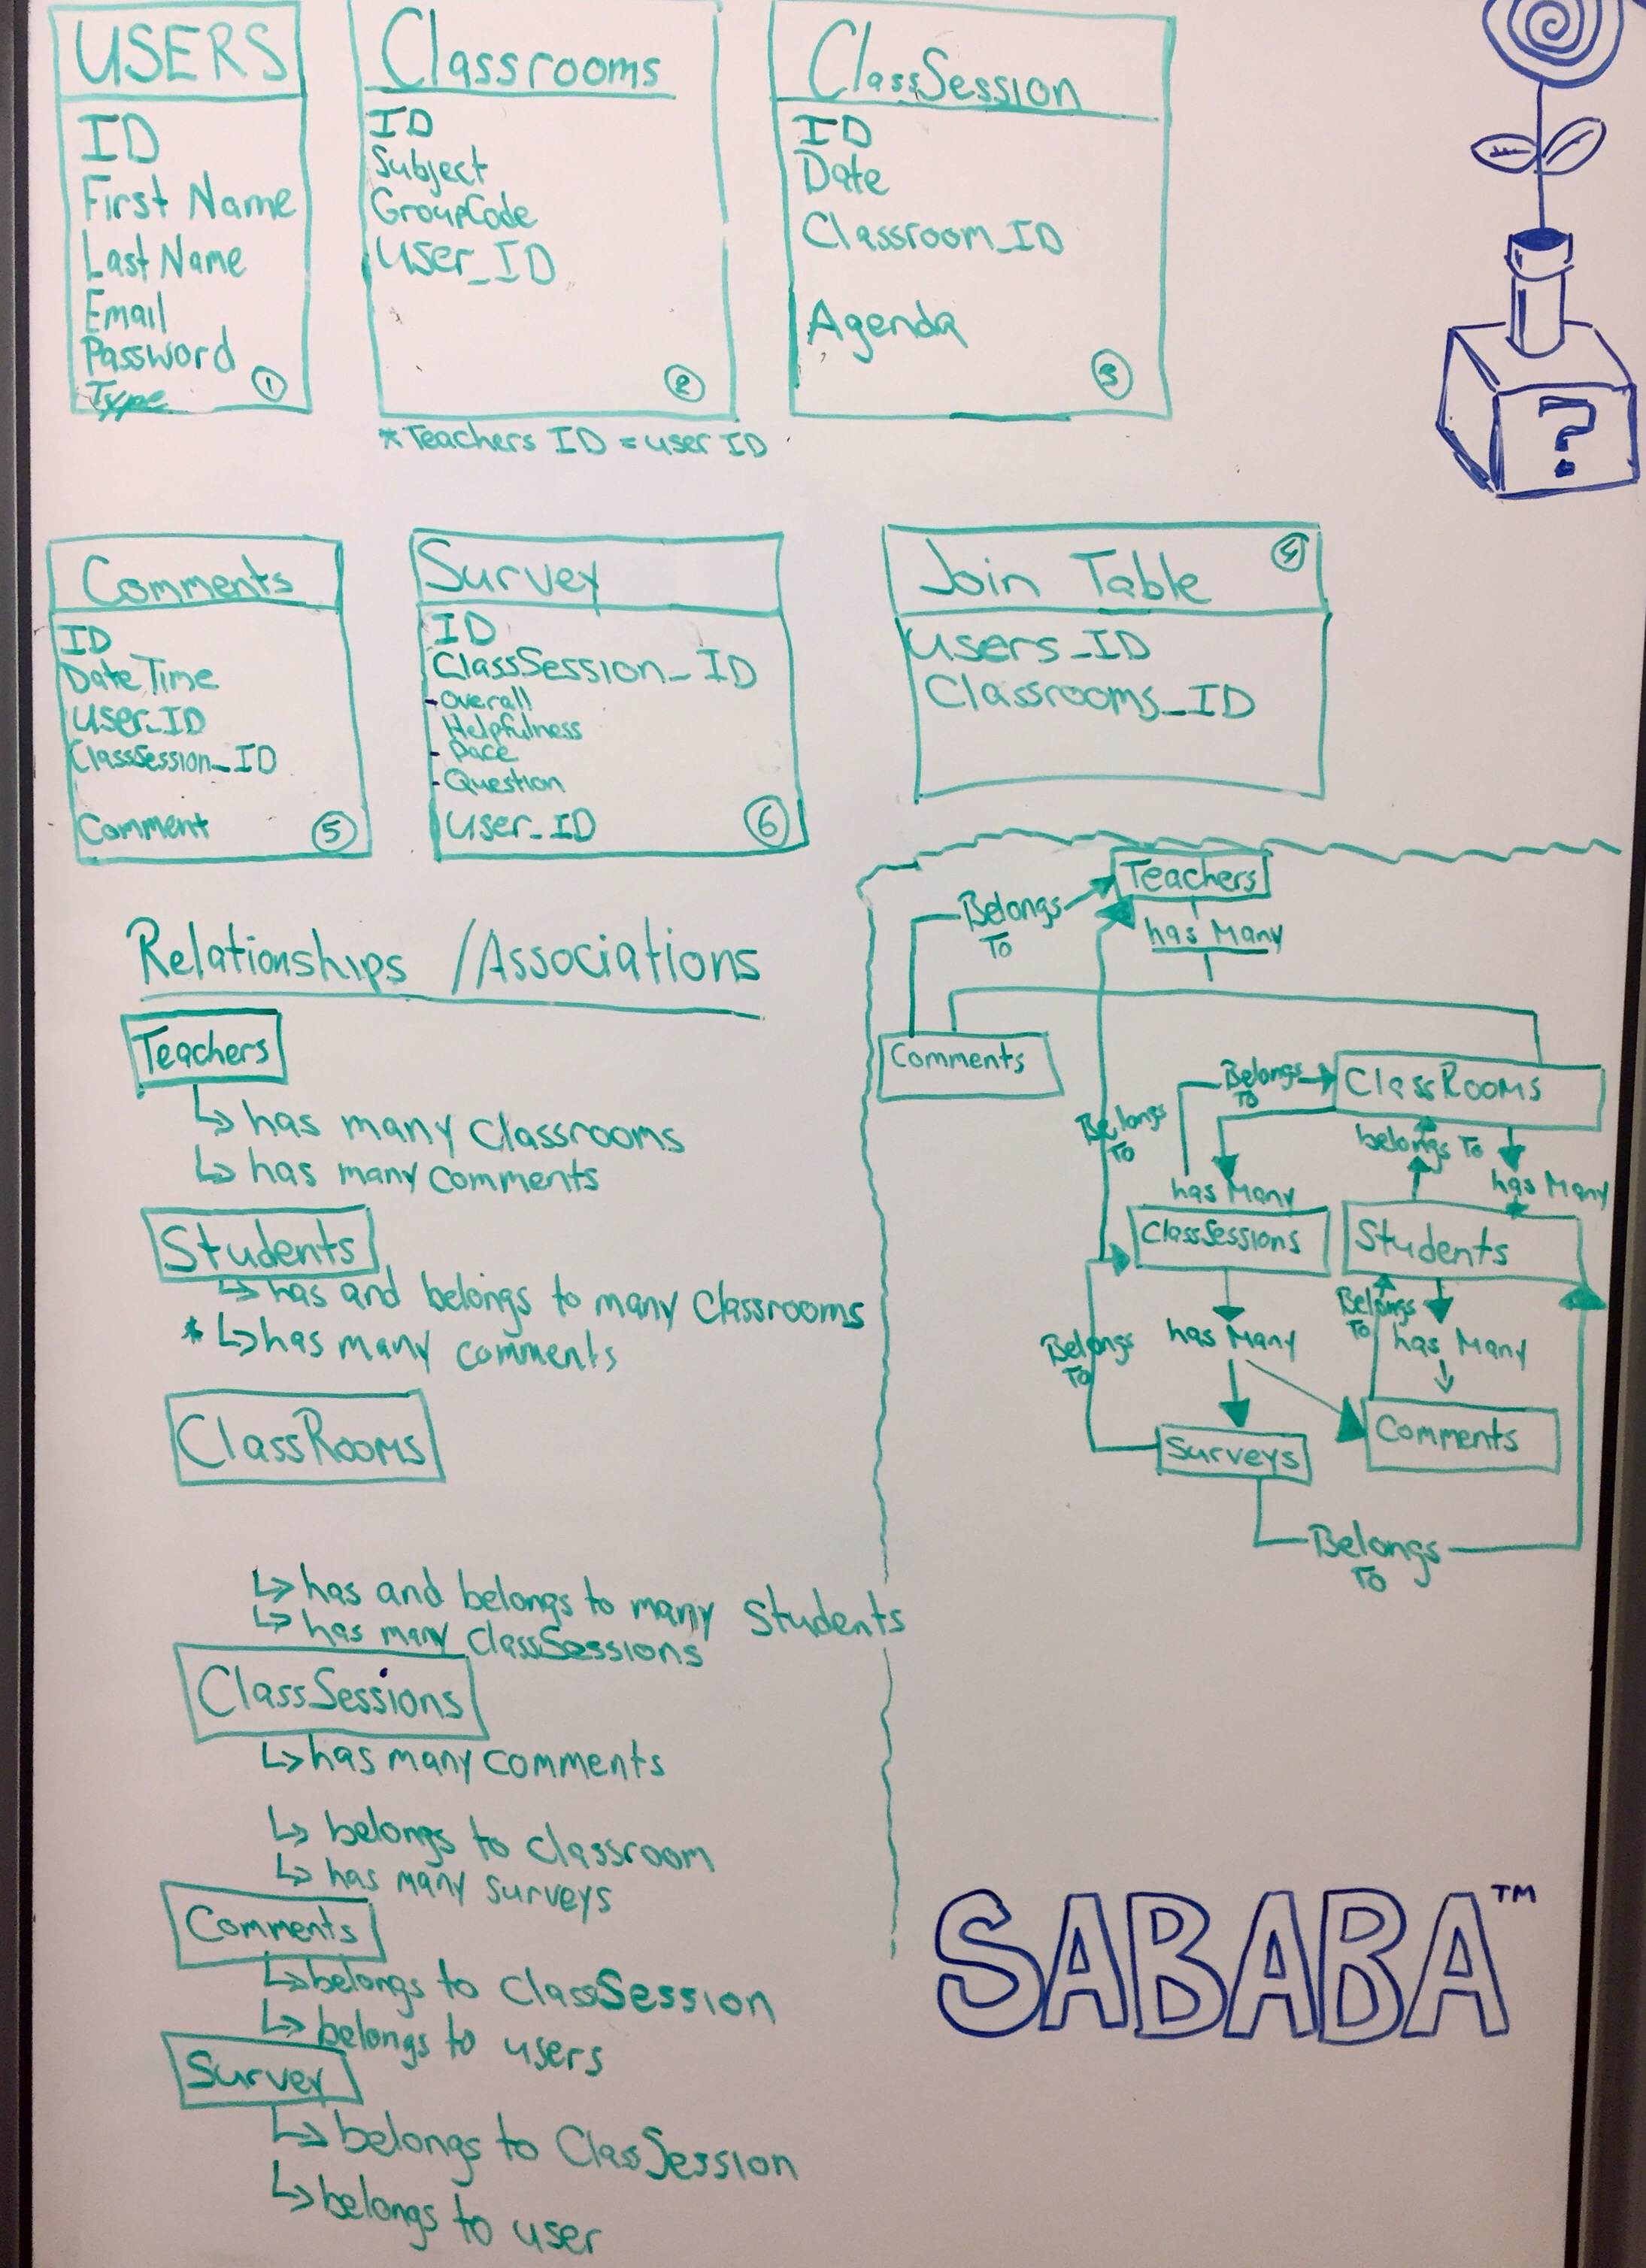 USERS
ID
First Name
Last Name
Email
Password
Type
①
Classrooms
ID
Subject
GroupCode
User_ID
②
*Teachers ID = user ID
ClassSession
ID
Date
Classroom_ID
Agenda
③
?
Comments
ID
DateTime
User_ID
ClassSession_ID
Comment
⑤
Survey
ID
ClassSession_ID
-Overall
Helpfulness
- Pace
-Question
User_ID
⑥
Join Table
④
Users_ID
Classrooms_ID
Relationships /Associations
Teachers
↳ has many Classrooms
↳ has many comments
Students
↳ has and belongs to many Classrooms
* ↳ has many comments
ClassRooms
↳ has and belongs to many Students
↳ has many ClassSessions
ClassSessions
↳ has many comments
↳ belongs to classroom
↳ has many surveys
Comments
↳ belongs to ClassSession
↳ belongs to users
Survey
↳ belongs to ClassSession
↳ belongs to user
Teachers
Belongs
To
has Many
Comments
Belongs
To
ClassRooms
Belongs
To
belongs To
has Many
has Many
ClassSessions
Students
Belongs
To
has Many
Belongs
To
has Many
Surveys
Comments
Belongs
To
SABABA™